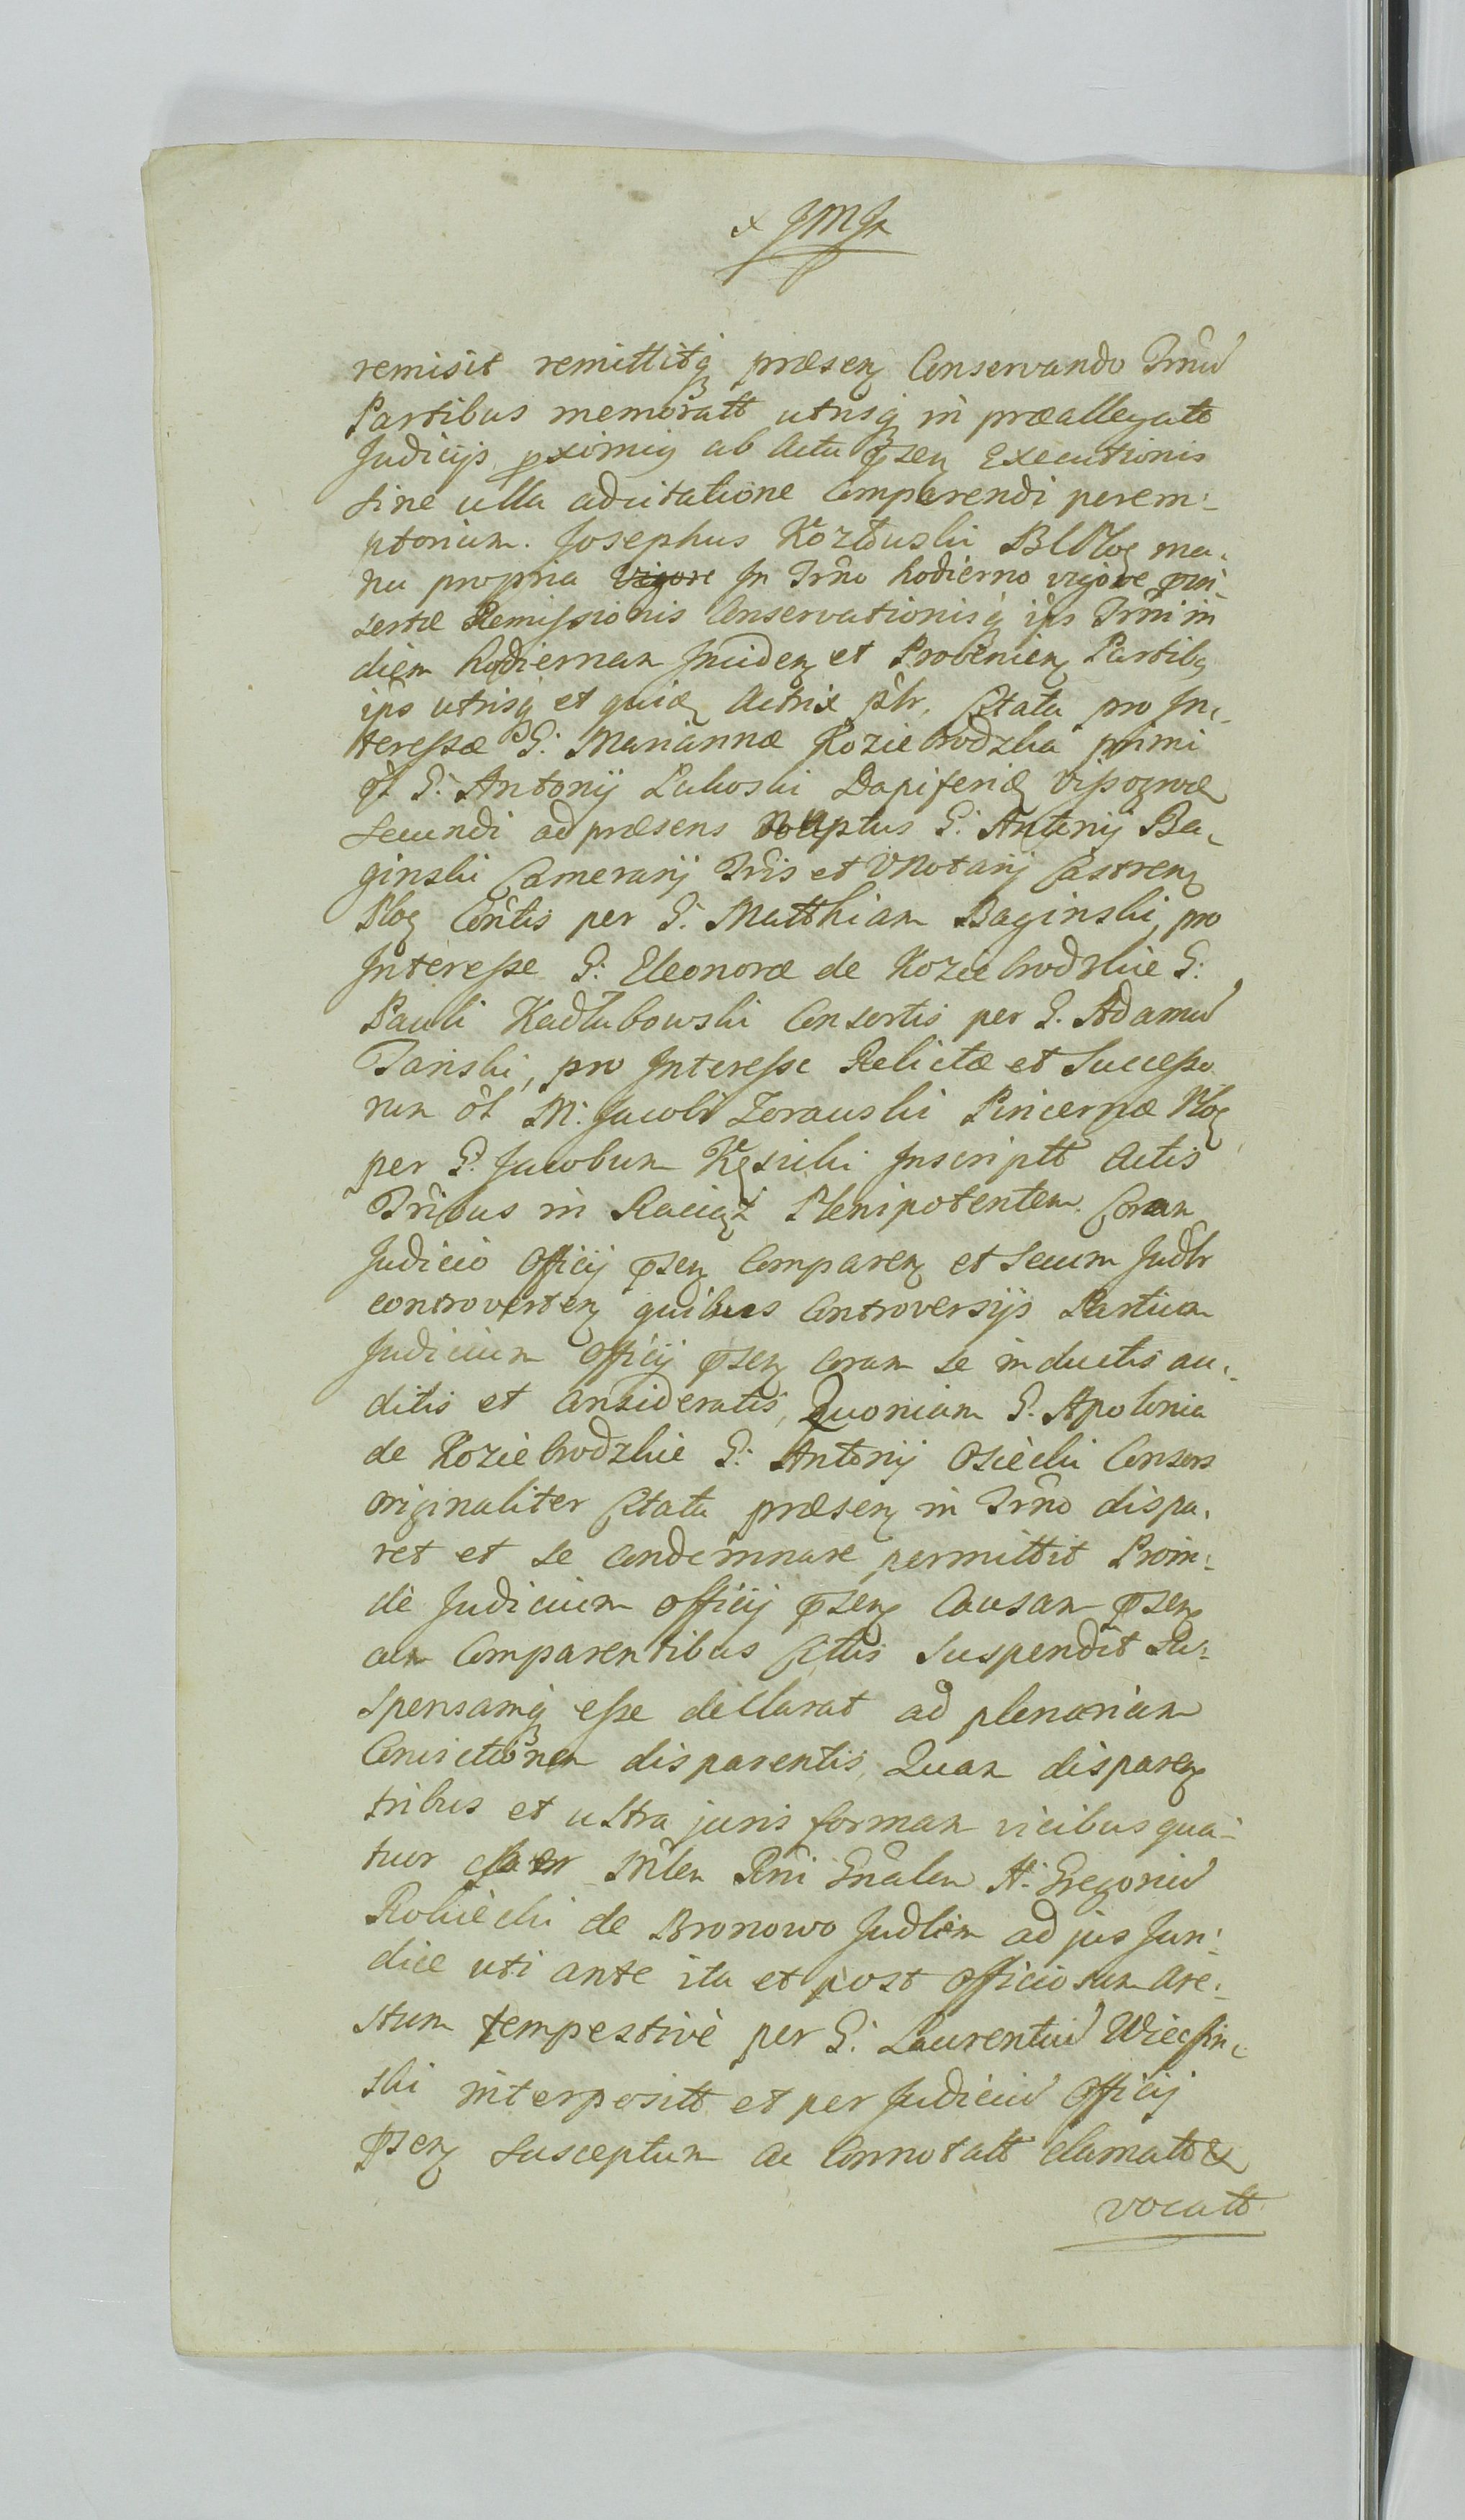 x JMJ
remisit remittitq præsen Conservando Trnũ
Partibus memoratt utrisq in præallegatt
Judicijs pximis ab Actu psen Executionis
sine ulla adcitatione Comparendi perem:
ptorium. Josephus Kozłouski BLPłoc ma,
nu propria Vigore In Trno hodierno vigore præin:
sertæ Remissionis Conservationisq ips Trni in
diem hodiernam Inciden et Provenien Partibq
ips utrisq et quidẽ Actrix phr. Citata pro In:
teressæ G: Mariannæ Koziebrodzka primi
ol G: Antonij Lukoski Dapiferidæ Vissogroden
secundi ad præsens Voti G: Antonij Ba,
ginski Camerarij Tris et VNotarij Castren
Płoc Contis per G: Matthiam Baginski, pro
Interesse G: Eleonoræ de Koziebrodzkie G:
Pauli Kadłubowski Consortis per G. Adamũ
Tański, pro Interesse Relictæ et Successo
rum ol M: Jacobi Zorauski Pincernæ Płoc
per G. Jacobum Kęsicki Inscriptt Actis
Tribus in Raciąż Plenipotentem. Coram
Judicio Officij psen Comparen et secum Judlr
controverten quibus Controversijs Partium
Judicium Officij psen Coram se inductis au:
ditis et Consideratis, Quoniam G. Apolonia
de Koziebrodzkie G: Antonij Osiecki Consors
originaliter Citata præsen in Trno dispa,
ret et se condemnare permittit Proin:
de Judicium Officij psen Causam psen
cum Comparentibus Citis Suspendit Su:
spensamq esse declarat ad plenariam
Convictionem disparentis, Quam disparen
tribus et ultra juris formam vicibus qua:
tuor Mlem Rni Gnalem H: Gregoriũ
Rokiecki de Bronowo Judlem ad jus Juri:
dice uti ante ita et post Officiosum Are:
stum tempestivè per G: Laurentiũ Wiecsin:
ski interpositt et per Judiciũ Officij
psen Susceptum ac Connotatt clamatt &
vocatt